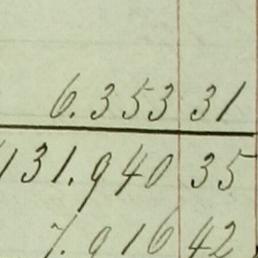 6.353 31
131.940 35
7.916 42